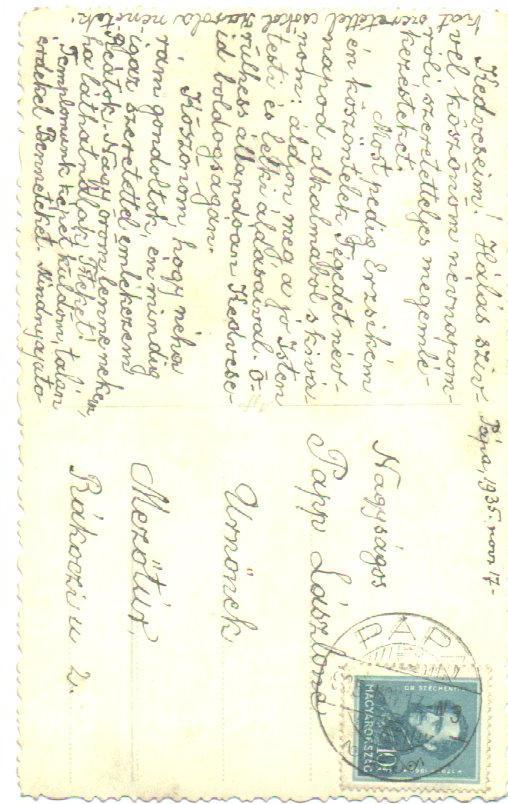 Pápa, 1935. nov. 17-
Kedveseim! Hálás szív-
vel köszönöm névnapom-
ról szeretettetjes megemlé-
kezésteket.
Most pedig Erzsikém
én köszöntelek Tégedet név-
napod alkalmából s kívá-
nom: áldjon meg a jó Isten
testi és lelki áldásaival. Ö-
rülhess állandóan Kedvese-
id boldogságán.
Köszönöm, hogy néha
rám gondoltok, én mindig
igaz szeretettel emlékezem
Reátok. Nagy öröm lenne nekem,
ha láthatnálak Titeket!
Templomunk képét küldöm, talán
érdekel Benneteket. Mindnyájato-
kat szeretettel csókol Sarolta nénétek.
Nagyságos
Papp Lászlóné
Urnőnek
Mezőtúr
Rákóczi u 2.
PÁPA
DR SZÉCHENYI
MAGYARORSZÁG
10